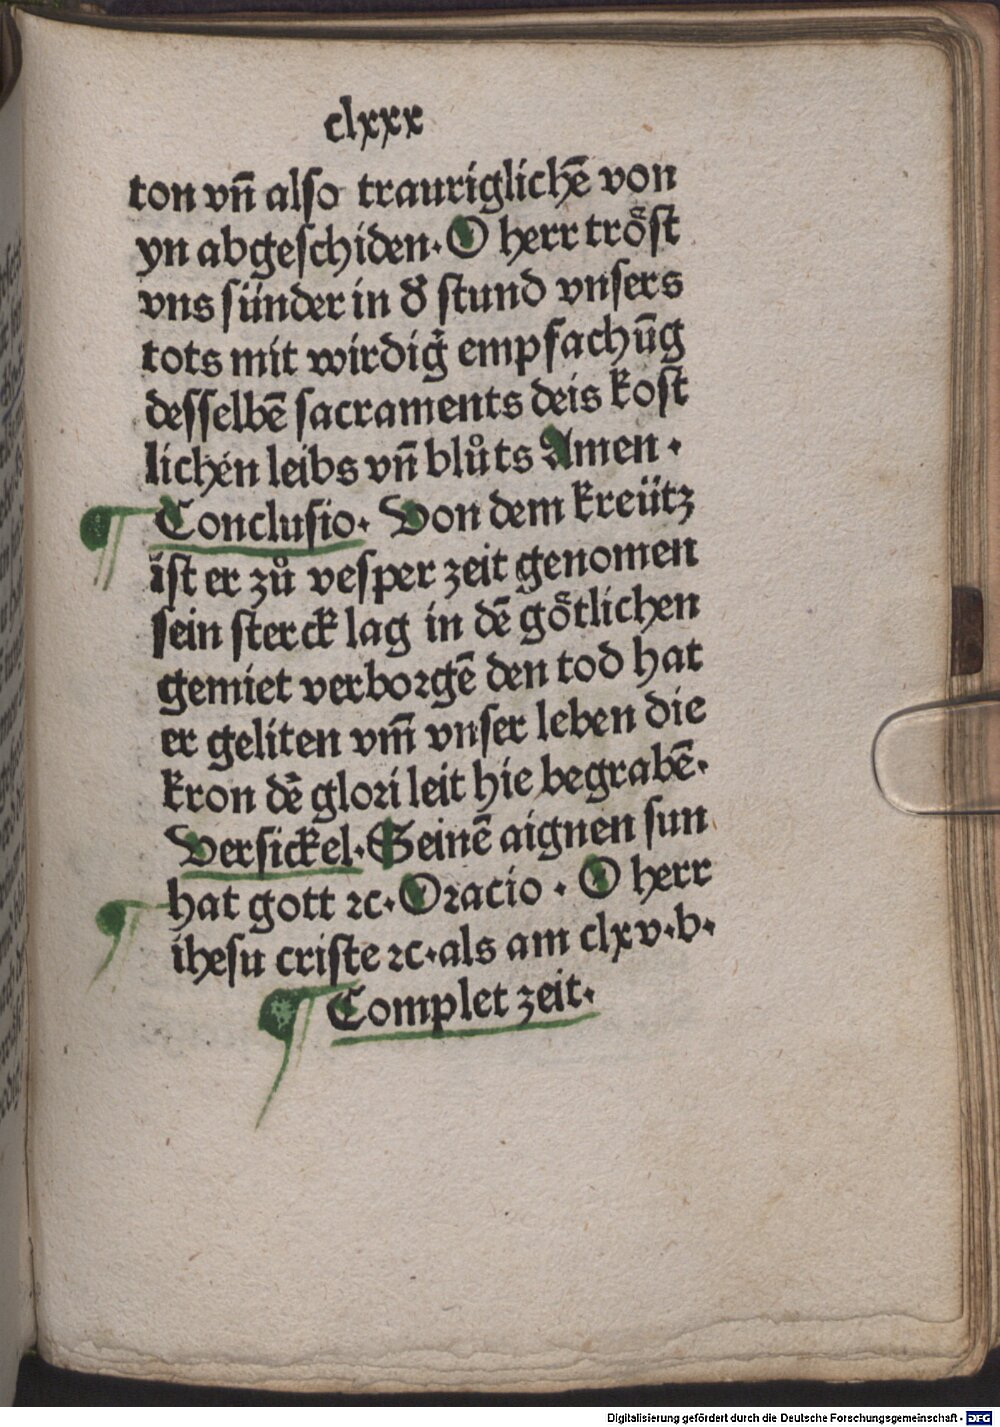 clxxx
ton vn̄ also trauriglichē von
yn abgeschiden. O herr trőst
vns sünder in d̕ stund vnsers
tots mit wirdig̕ empfachūg
desselbē sacraments deis kost
lichen leibs vn̄ blůts Amen.
Conclusio. Von dem kreütz
ist er zů vesper zeit genomen
sein sterck lag in dē götlichen
gemiet verborgē den tod hat
er geliten vm̄ vnser leben die
kron dē glori leit hie begrabē.
Versickel. Seinē aignen sun
hat gott ⁊c. Oracio. O herr
ihesu criste ⁊c. als am clxv.b.
Complet zeit.
Digitalisierung gefördert durch die Deutsche Forschungsgemeinschaft - DFG